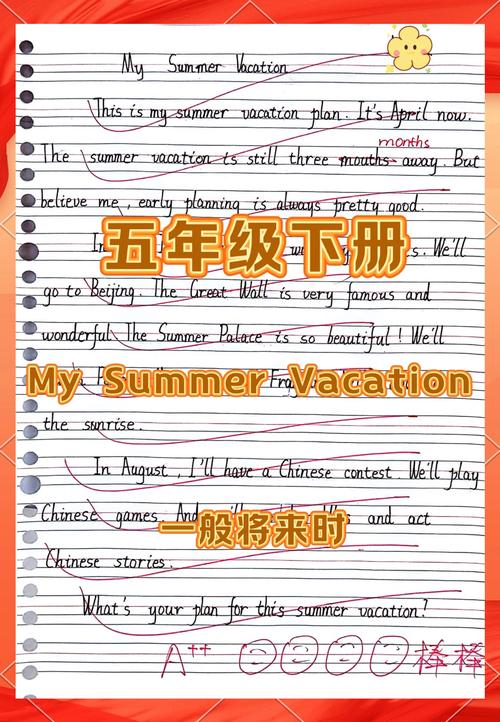 My Summer Vacation
This is my summer vacation plan. It's April now.
months
The summer vacation is still three mouths away. But
believe me, early planning is always pretty good.
In We'll
五年级下册
go to Beijing. The Great Wall is very famous and
wonderful. The Summer Palace is so beautiful! We'll
My Summer Vacation
the sunrise.
In August, I'll have a Chinese contest. We'll play
Chinese games. And and act
一般将来时
Chinese stories.
What's your plan for this summer vacation?
A++ 棒棒